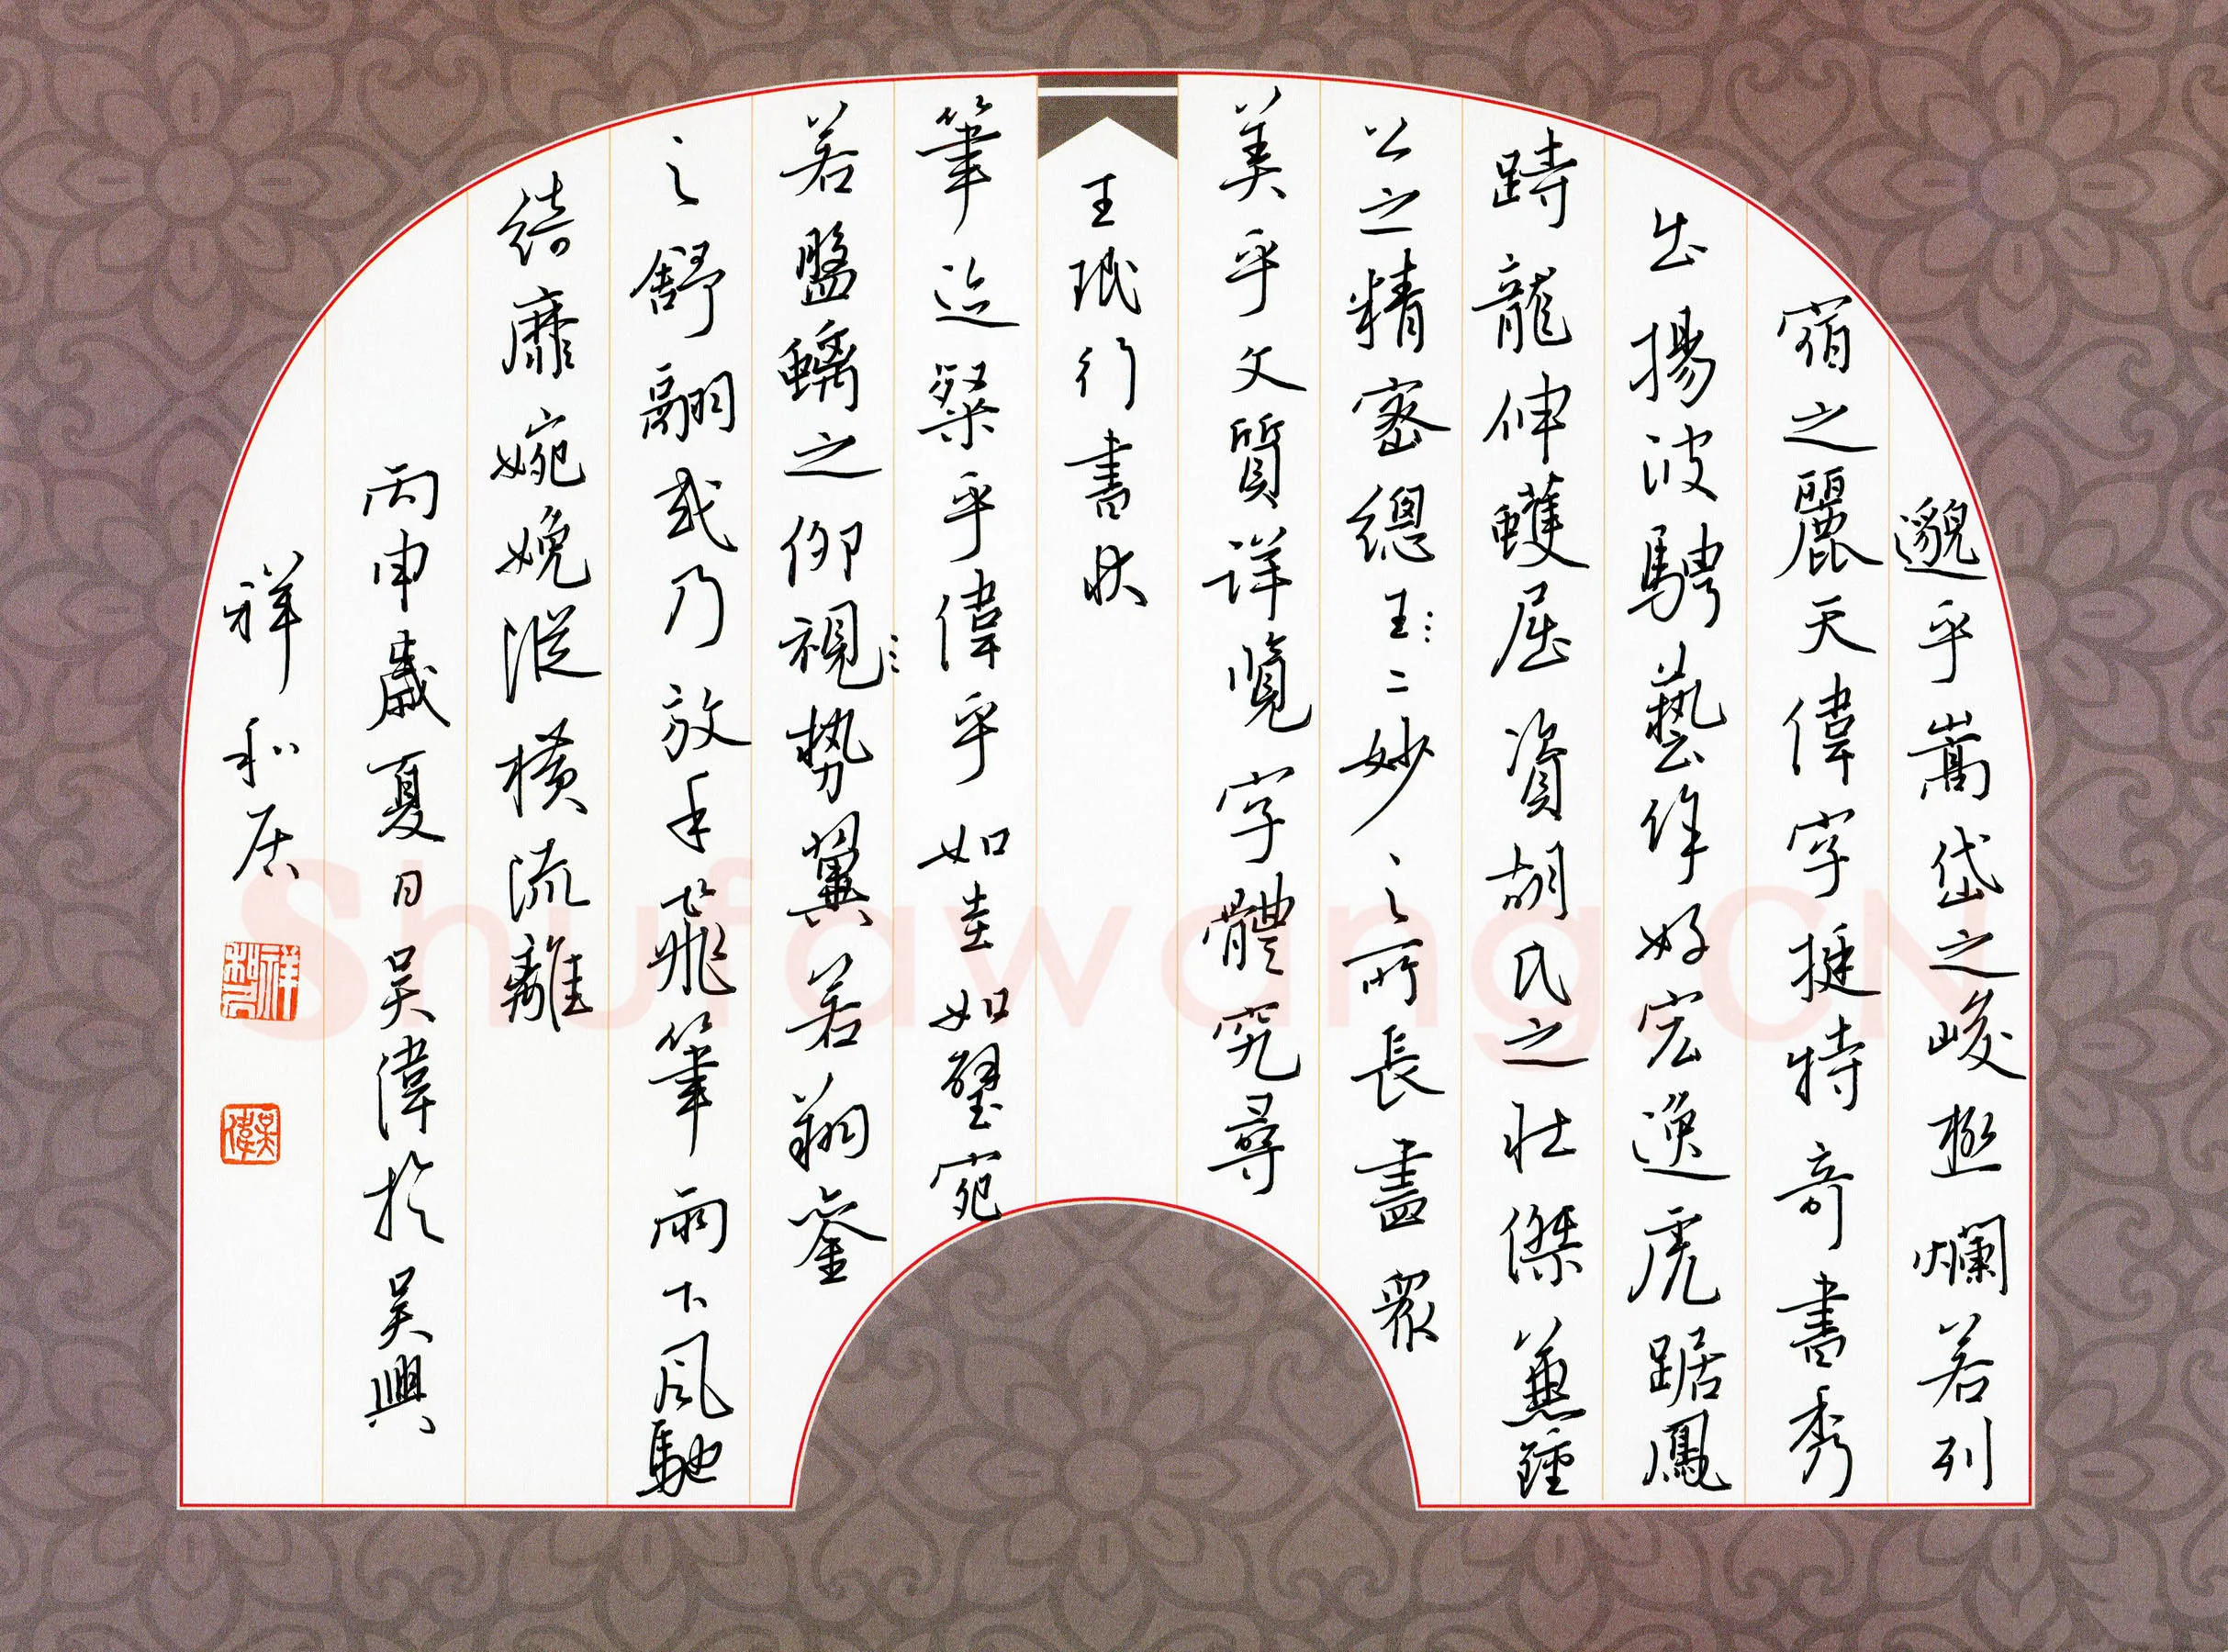 邈乎嵩岱之峻極爛若列
宿之麗天偉字挺特奇書秀
出揚波騁藝作好宏逸虎踞鳳
跱龍伸蠖屈資胡氏之壯傑兼鍾
公之精密總王二妙之所長盡眾
美乎文質詳覽字體究尋
王珉行書狀
筆迹粲乎偉乎如圭如璧宛
若盤螭之仰視勢翼若翔鸞
之舒翮或乃放手飛筆雨下風馳
綺靡婉娩縱橫流離
丙申歲夏日吳偉於吳興
祥和居
吳偉
Shufawang.CN